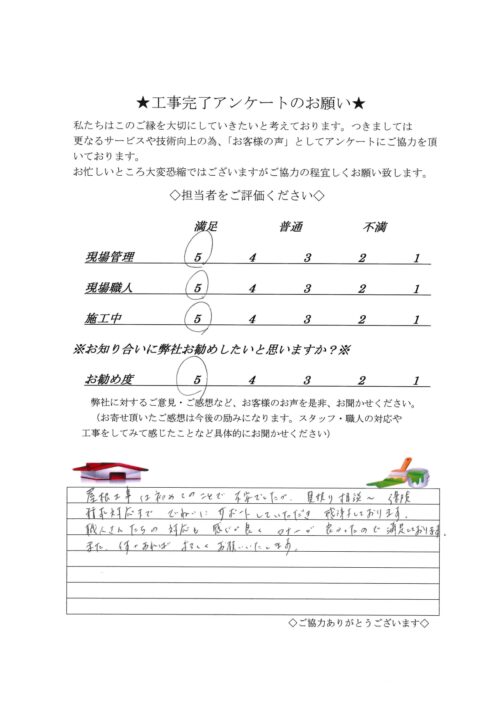 ★工事完了アンケートのお願い★
私たちはこのご縁を大切にしていきたいと考えております。つきましては
更なるサービスや技術向上の為、「お客様の声」としてアンケートにご協力を頂
いております。
お忙しいところ大変恐縮ではございますがご協力の程宜しくお願い致します。
◇担当者をご評価ください◇
満足 普通 不満
現場管理 5 4 3 2 1
現場職人 5 4 3 2 1
施工中 5 4 3 2 1
※お知り合いに弊社お勧めしたいと思いますか？※
お勧め度 5 4 3 2 1
弊社に対するご意見・ご感想など、お客様のお声を是非、お聞かせください。
（お寄せ頂いたご感想は今後の励みになります。スタッフ・職人の対応や
工事をしてみて感じたことなど具体的にお聞かせください）
屋根工事は初めてのことで不安でしたが、見積り相談～
対応まで ていねいに サポートしていただき 感謝しております。
職人さんたちの 対応も 感じが良く マナーが 良かったので 満足しております。
また、何かあれば よろしく お願いいたします。
◇ご協力ありがとうございます◇